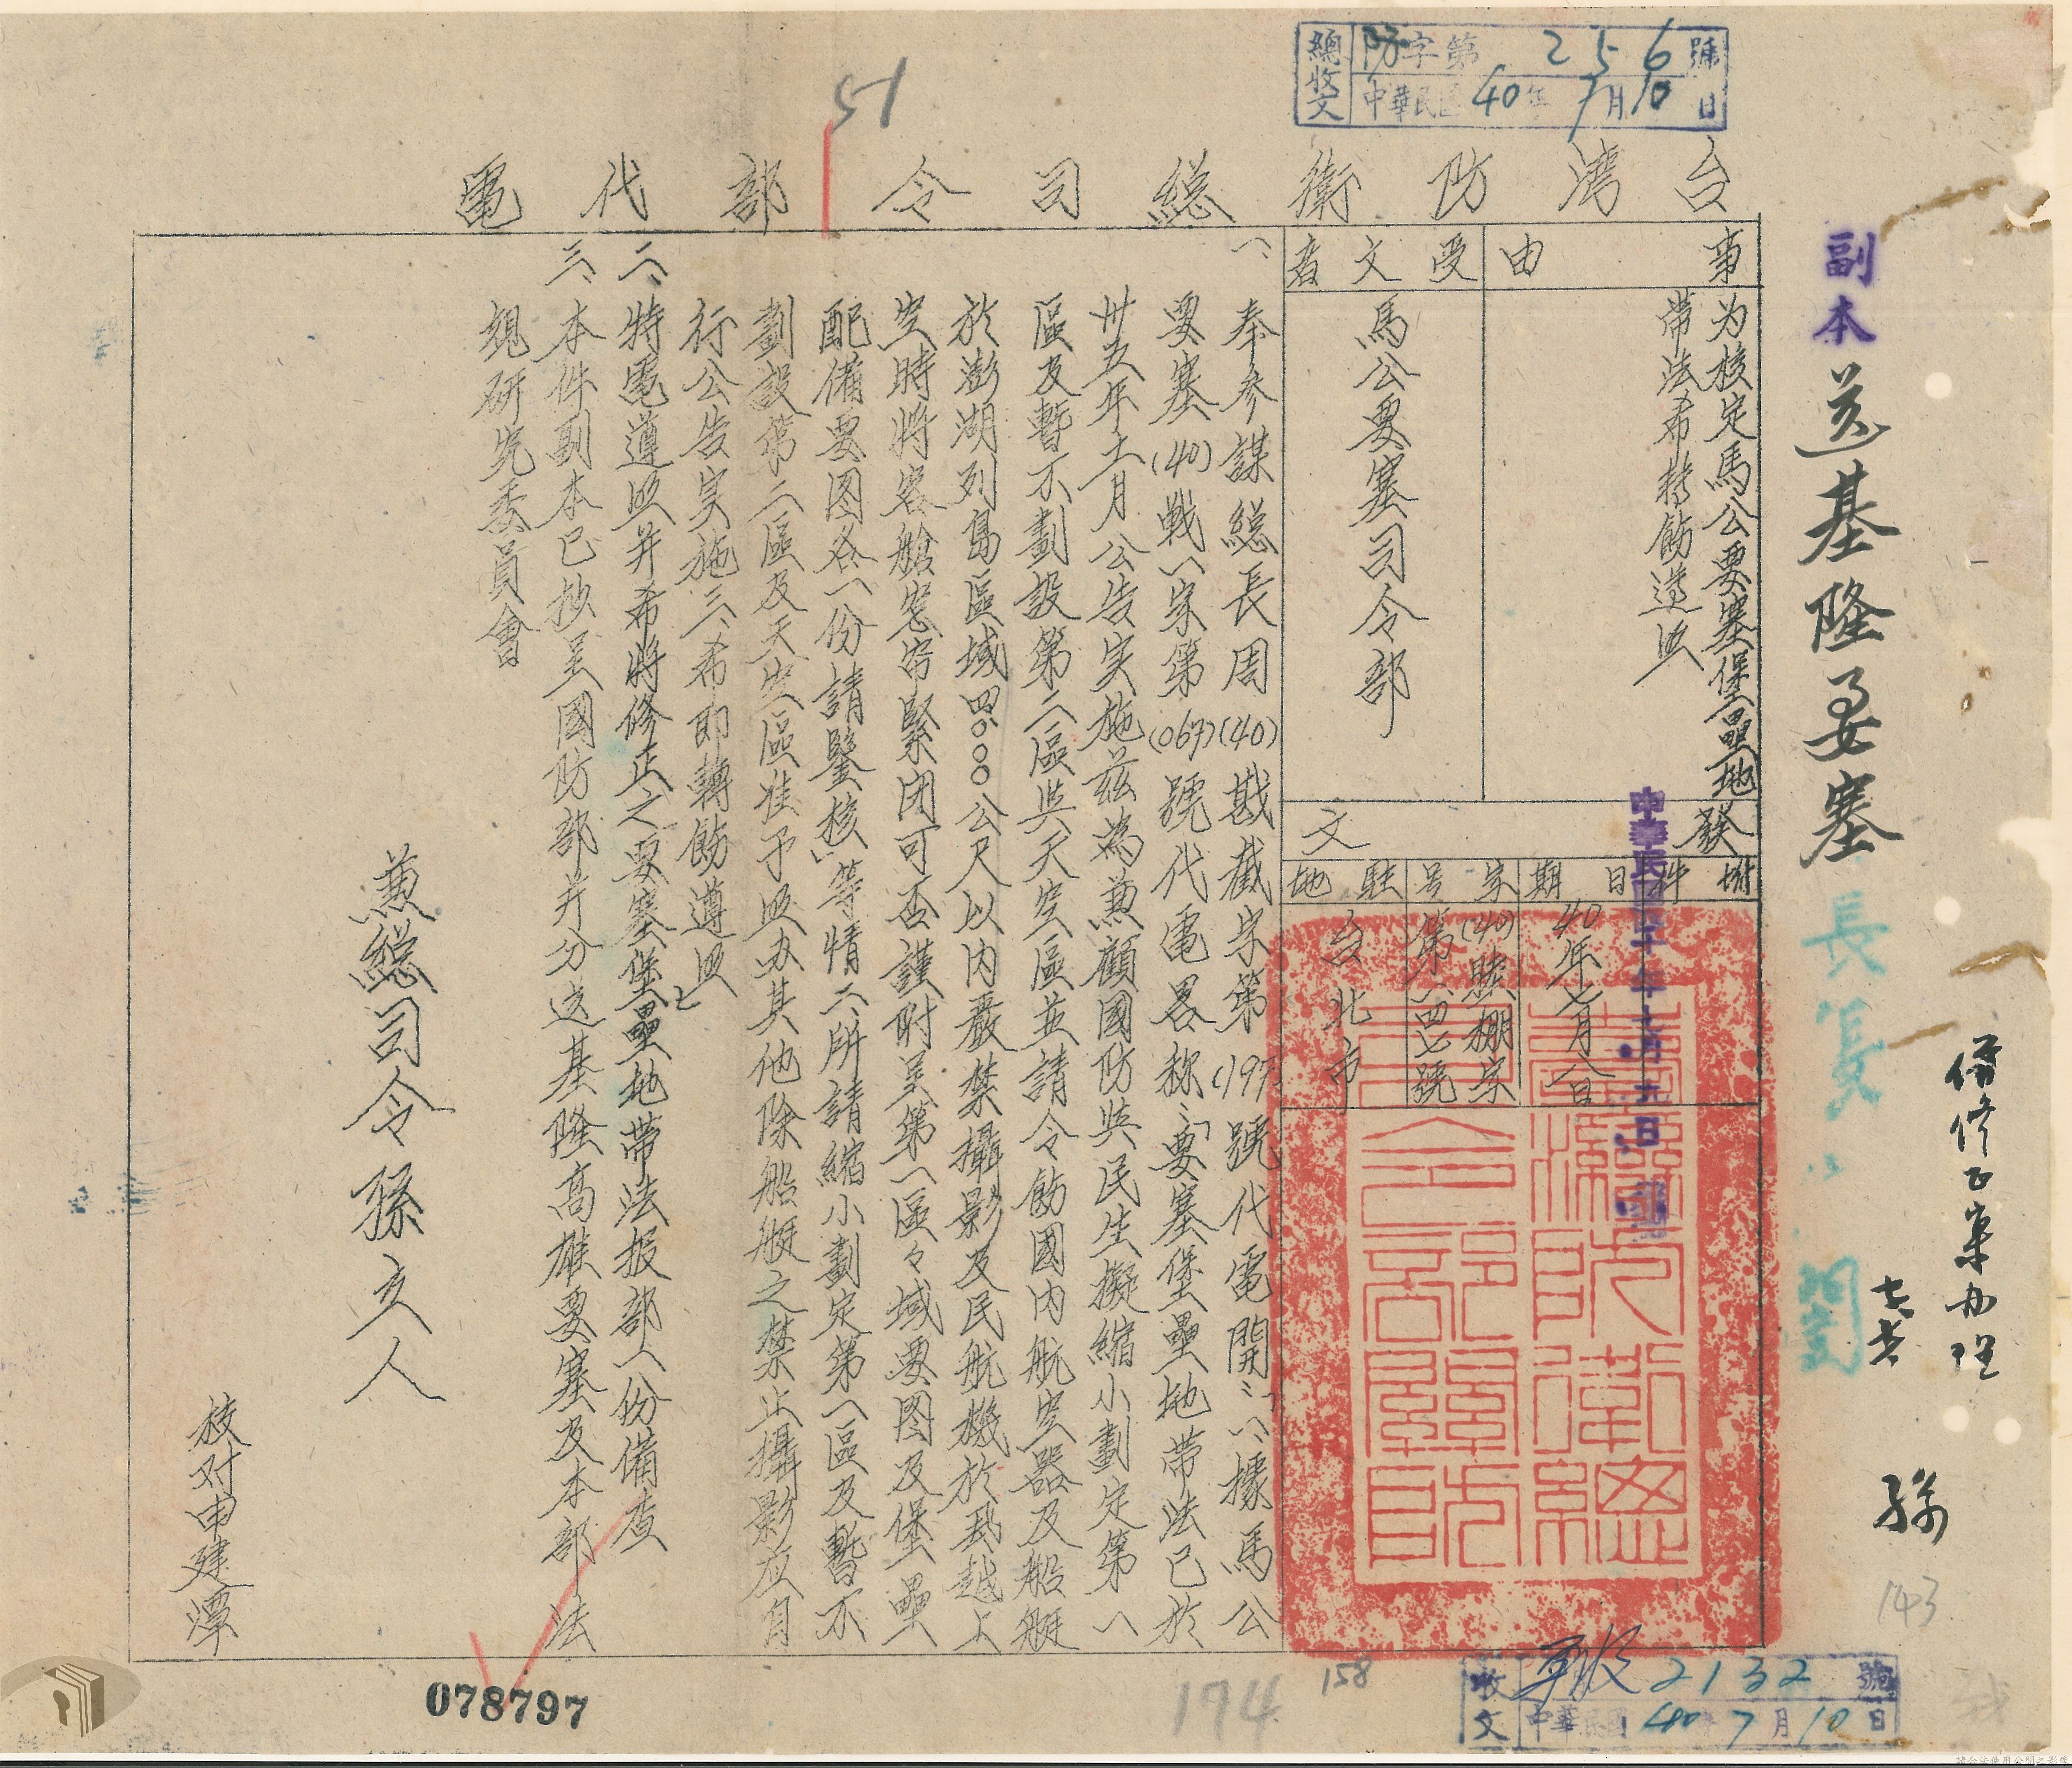 總收文 防字第256號
中華民國40年7月10日
51
台灣防衛総司令部代電
副本 送基隆要塞
事由
为核定馬公要塞堡壘地
帶法希轉飭遵照
受文者
馬公要塞司令部
發文
附件
日期
40年七月八日
字号
(40)
第一四七號
駐地
台北市
一、奉參謀総長周(40)戡截字第(197)號代電開:「一、據馬公
要塞(40)戰一字第(067)號代電畧称:「要塞堡壘地帶法已於
卅五年十一月公告実施茲為兼顧國防與民生擬縮小劃定第一
區及暫不劃設第二區與天空區並請令飭國內航空器及船艇
於澎湖列島區域四〇〇〇公尺以內嚴禁攝影及民航機於飛越上
空時將客艙窓帘緊闭可否謹附呈第一區々域要图及堡壘
配備要图各一份請鑒核」等情二、所請縮小劃定第一區及暫不
劃設第二區及天空區准予照办其他除船艇之禁止攝影应自
行公告実施三、希即轉飭遵照」
二、特電遵照并希將修正之要塞堡壘地帶法报部一份備查
三、本件副本已抄呈國防部并分送基隆高雄要塞及本部法
規研究委員會
兼総司令孫立人
校对申建潭
俻修正案办理
孫
143
158
174
078797
收文 2132號
中華民國40年7月10日